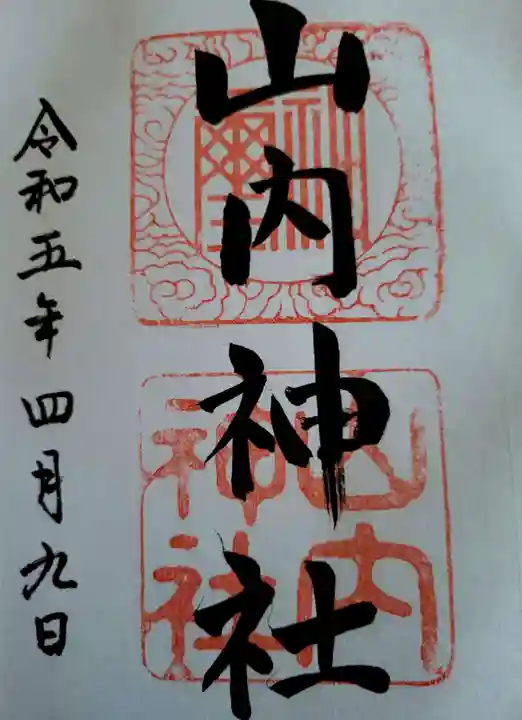 山内神社
山内
神社
神璽
令和五年四月九日